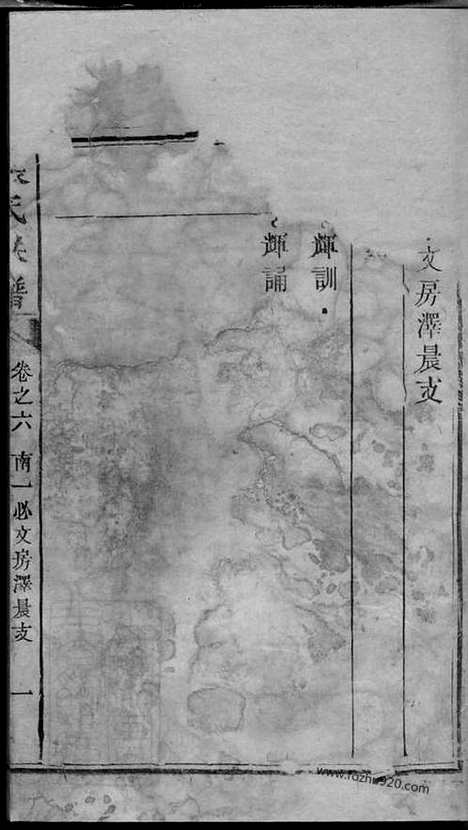 文房澤晨支
輝訓
輝誦
氏族譜
卷之六 南一必文房澤晨支 一
www.fozhu920.com